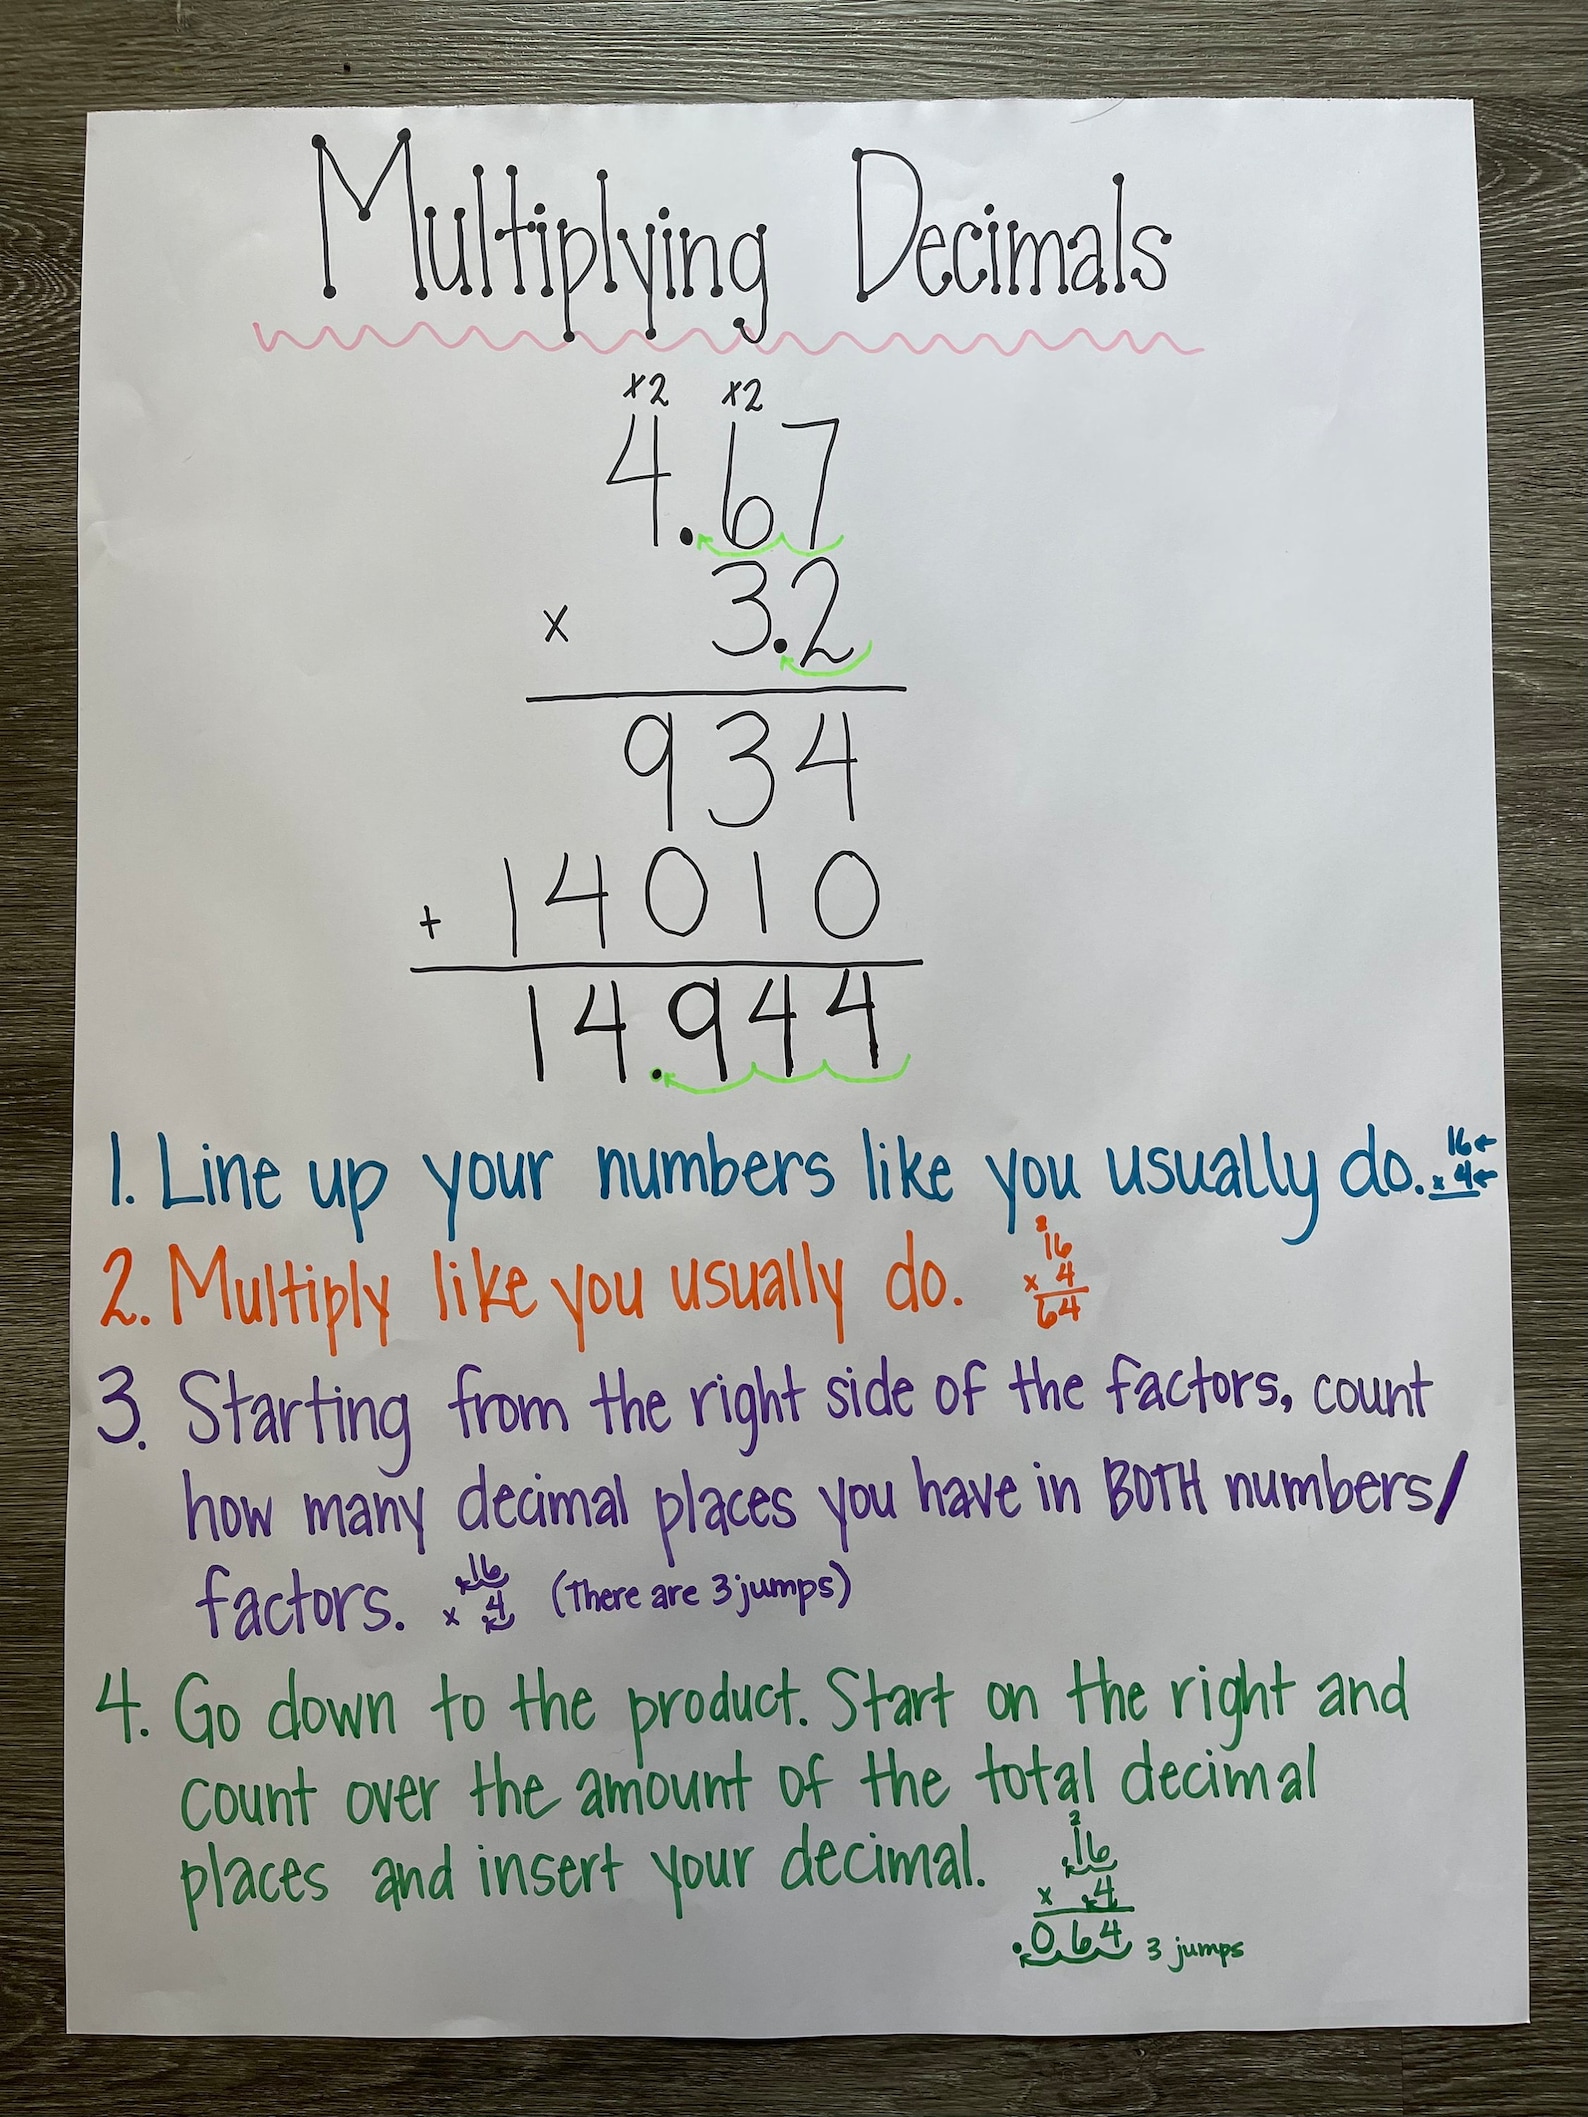 Multiplying Decimals
x2 x2
4.67
x 3.2
934
+ 14010
14.944
1. Line up your numbers like you usually do. 16
x 4
2. Multiply like you usually do. 16
x 4
64
3. Starting from the right side of the factors, count
how many decimal places you have in BOTH numbers/
factors. .16 (There are 3 jumps)
x .4
4. Go down to the product. Start on the right and
count over the amount of the total decimal
places and insert your decimal. 2
.16
x .4
.064 3 jumps